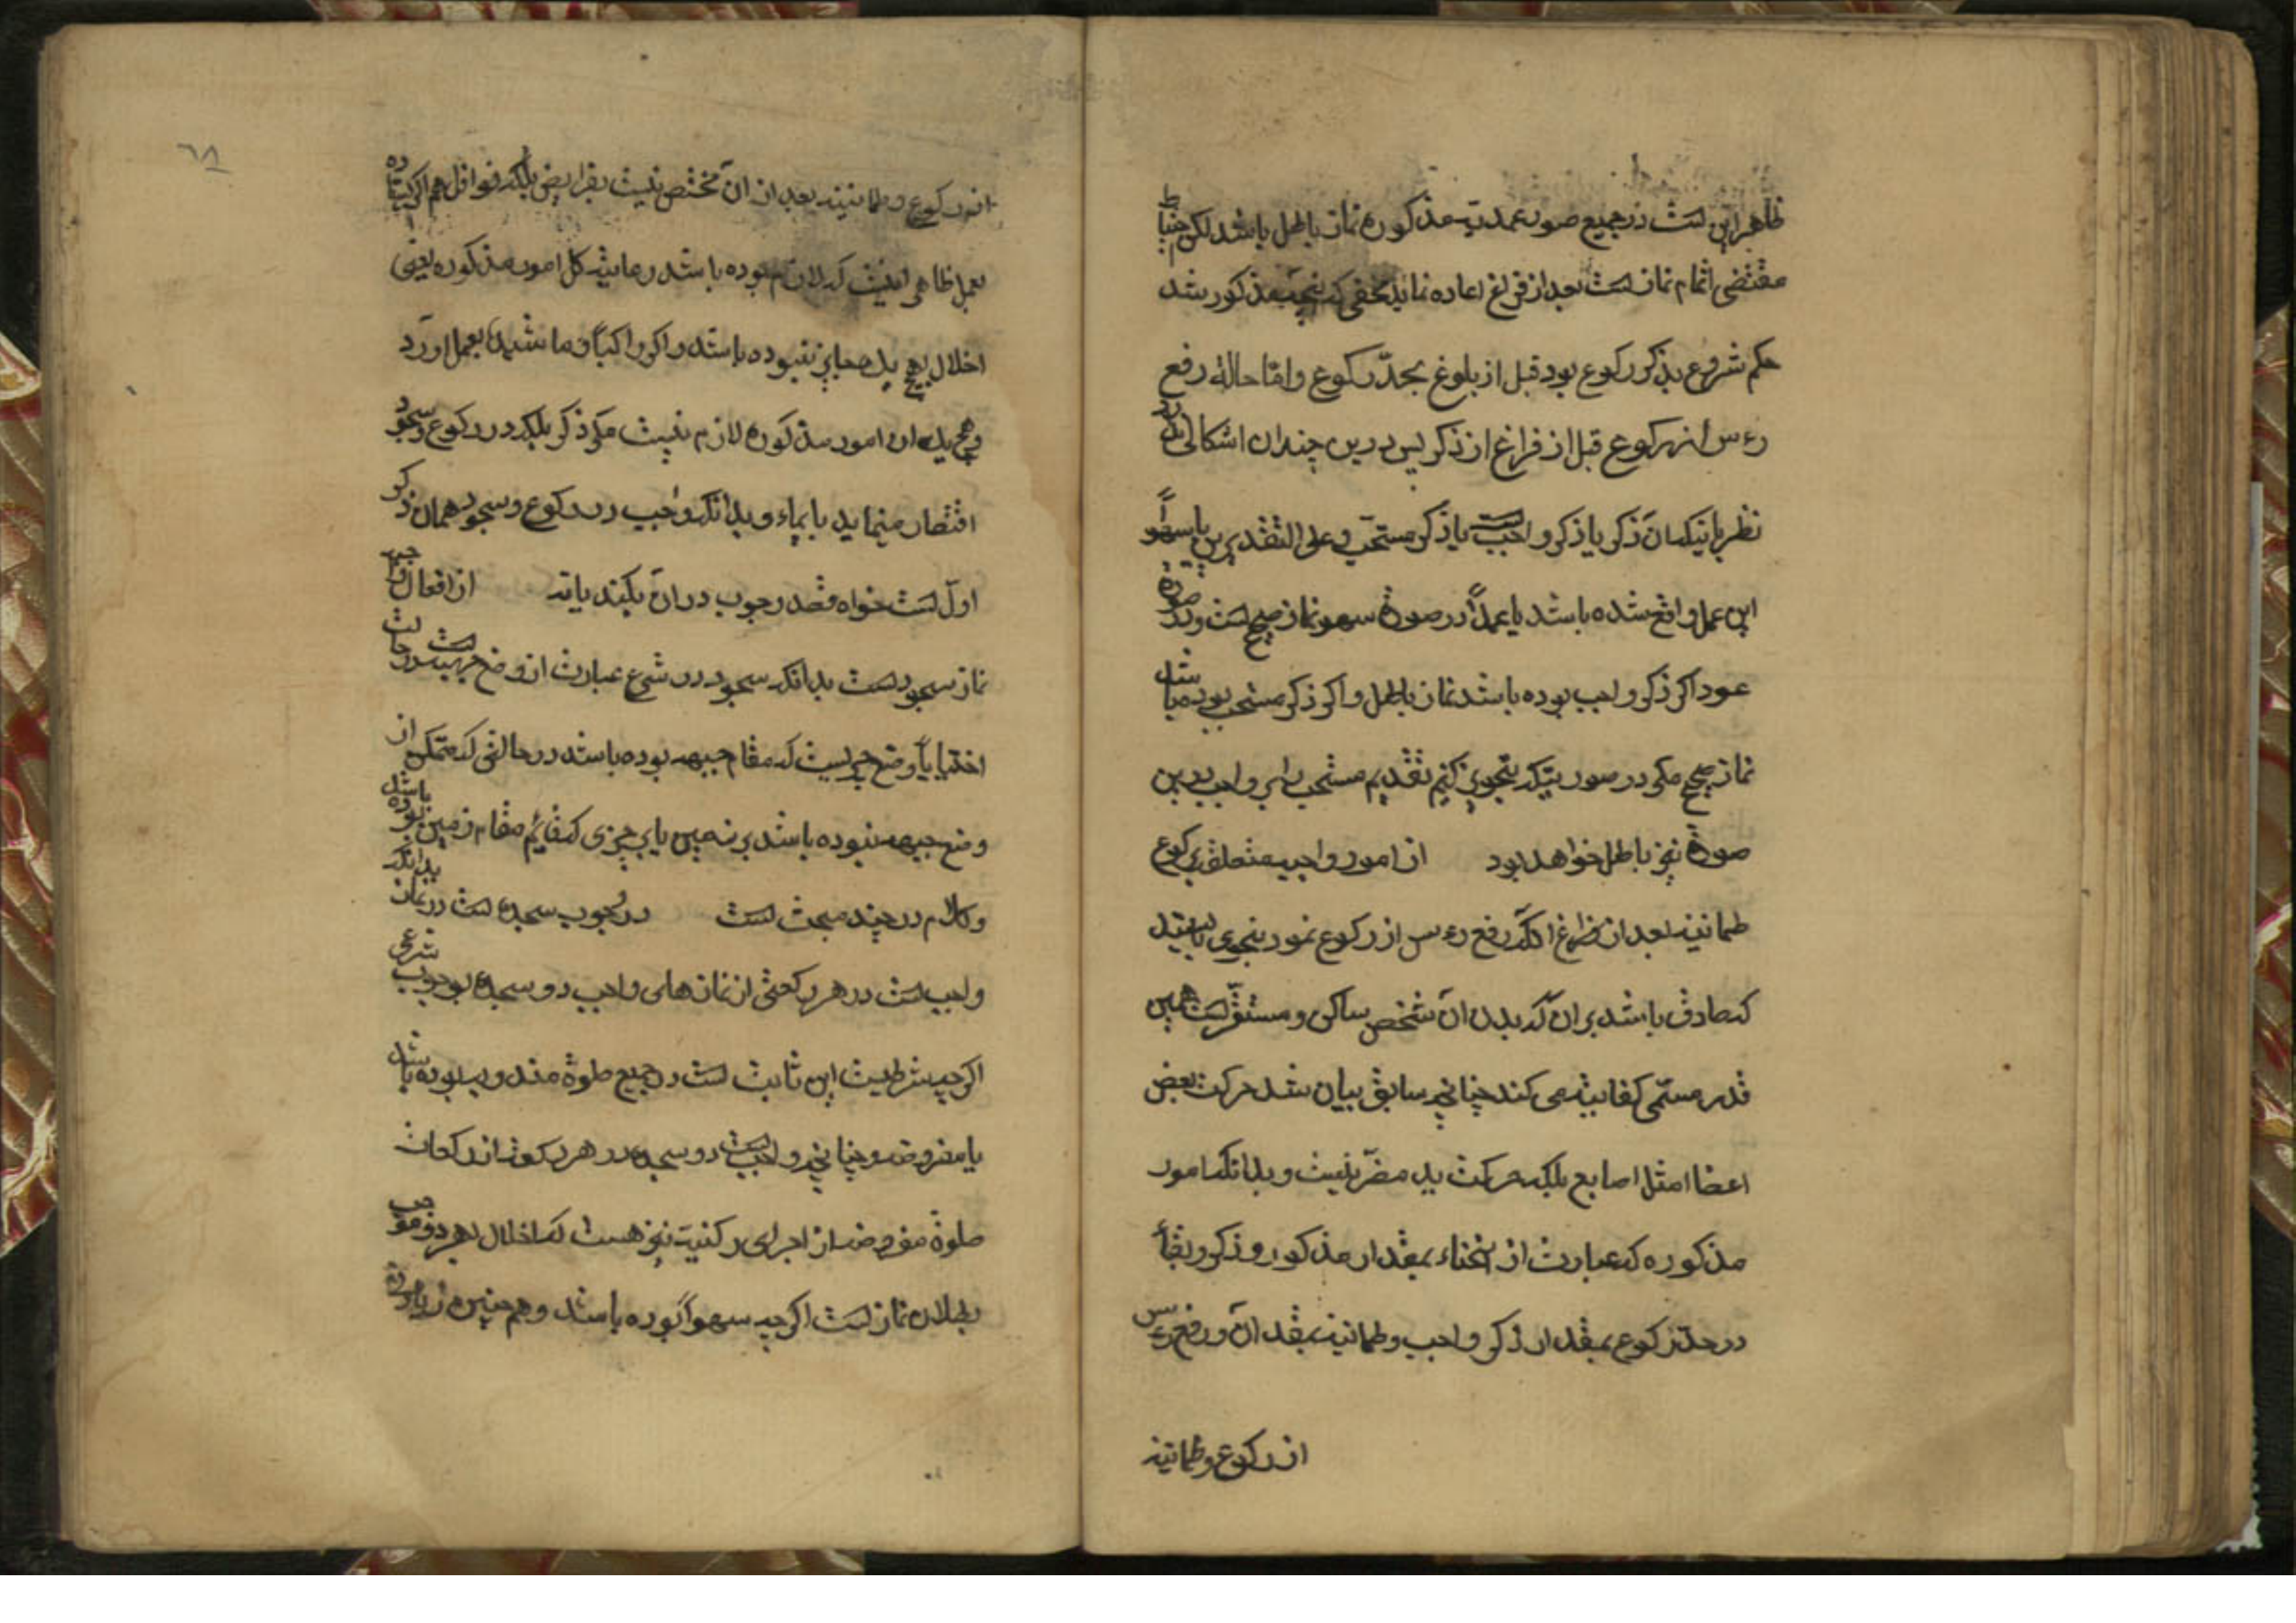 ظاهر این است در جمیع صور عمدیه مذکوره نماز باطل باشد لکن احتیاط
مقتضی اتمام نماز است بعد از فراغ اعاده نماید مخفی که آنچه مذکور شد
حکم شروع بذکر رکوع بود قبل از بلوغ بحدّ رکوع و امّا حالة رفع
رءس از رکوع قبل از فراغ از ذکر پس درین چندان اشکالی ندارد
نظر باینکه آن ذکر یا ذکر واجب است یا ذکر مستحّب و علی التقدیرین یا سهواً
این عمل واقع شده باشد یا عمداً در صورة سهو نماز صحیح است و در صورة
عود اکر ذکر واجب بوده باشد نماز باطل و اکر ذکر مستحب بوده باشد
نماز صحیح مکر در صورتیکه تجویز کنیم تقدیم مستحب را بر واجب درین
صورة نیز باطل خواهد بود از امور واجبه متعلق برکوع
طمانینه بعد از فراغ اذکر رفع رءس از رکوع نمود بنحوی بایستد
که صادق باشد بر آن که بدن آن شخص ساکن و مستقّر است همین
قدر مسمّی کفایة می کند چنانچه سابق بیان شد حرکت بعض
اعضا امثل اصابع بلکه حرکت ید مضّر نیست و بدانکه امور
مذکوره که عبارت از انحناء بمقدار مذکور و ذکر و بقاء
در حدّ رکوع بمقدار ذکر واجب و طمانینه بمقدار آن و رفع رءس
از رکوع و طمانینه
٦٨
از رکوع و طمانینه بعد از آن مختص نیست بفرایض بلکه نوافل هم اکر ایستاده
بعمل ظاهر اینست که لازم بوده باشد رعایة کل امور مذکوره یعنی
اخلال بهیچ یک جایز نبوده باشد و اکر راکباً و ماشیاً بعمل آورد
هیچ یک از امور مذکوره لازم نیست مکر ذکر بلکه در رکوع و سجود
اقتصار مینماید بایماء و بدانکه واجب در رکوع و سجود همان ذکر
اول است خواه قصد وجوب در آن بکند یا نه از افعال واجبه
نماز سجود است بدانکه سجود در شرع عبارت از وضع جبهه است در حالت
اختیار یا وضع چیزیست که مقام جبهه بوده باشد در حالتی که متمکن از
وضع جبهه نبوده باشد بر زمین یا بر چیزی که قائم مقام زمین بوده باشد
و کلام در چند مبحث است در وجوب سجده است در نماز بدانکه
واجب است در هر رکعتی از نمازهای واجب دو سجده بوجوب شرعی
اکرچه شرطیت این ثابت است در جمیع صلوة مندوب بوده باشد
یا مفروضه و چنانچه واجب است دو سجده در هر رکعة از رکعات
صلوة مفروضه از اجرای رکنیة نیز هست که اخلال بهر دو موجب
بطلان نماز است اکرچه سهواً بوده باشد و هم چنین